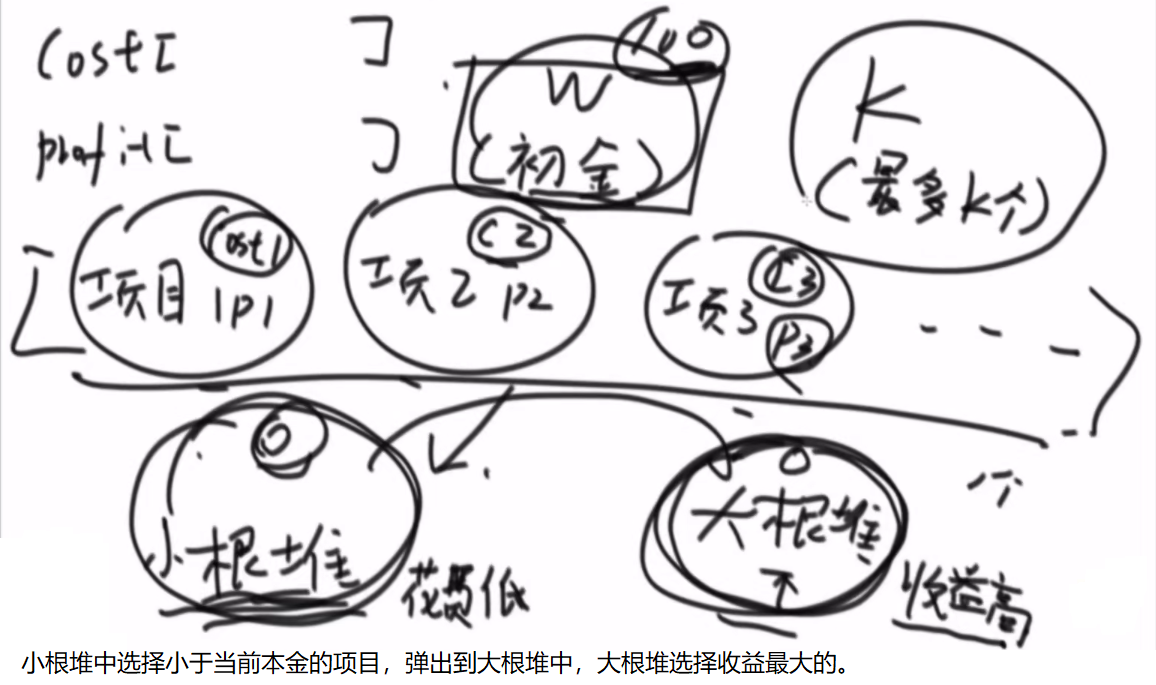 Cost[ ]
100
W
(初金)
K
(最多k个)
profit[ ]
项目1 cost1 p1
项2 c2 p2
项3 c3 p3
小根堆
花费低
大根堆
收益高
小根堆中选择小于当前本金的项目，弹出到大根堆中，大根堆选择收益最大的。